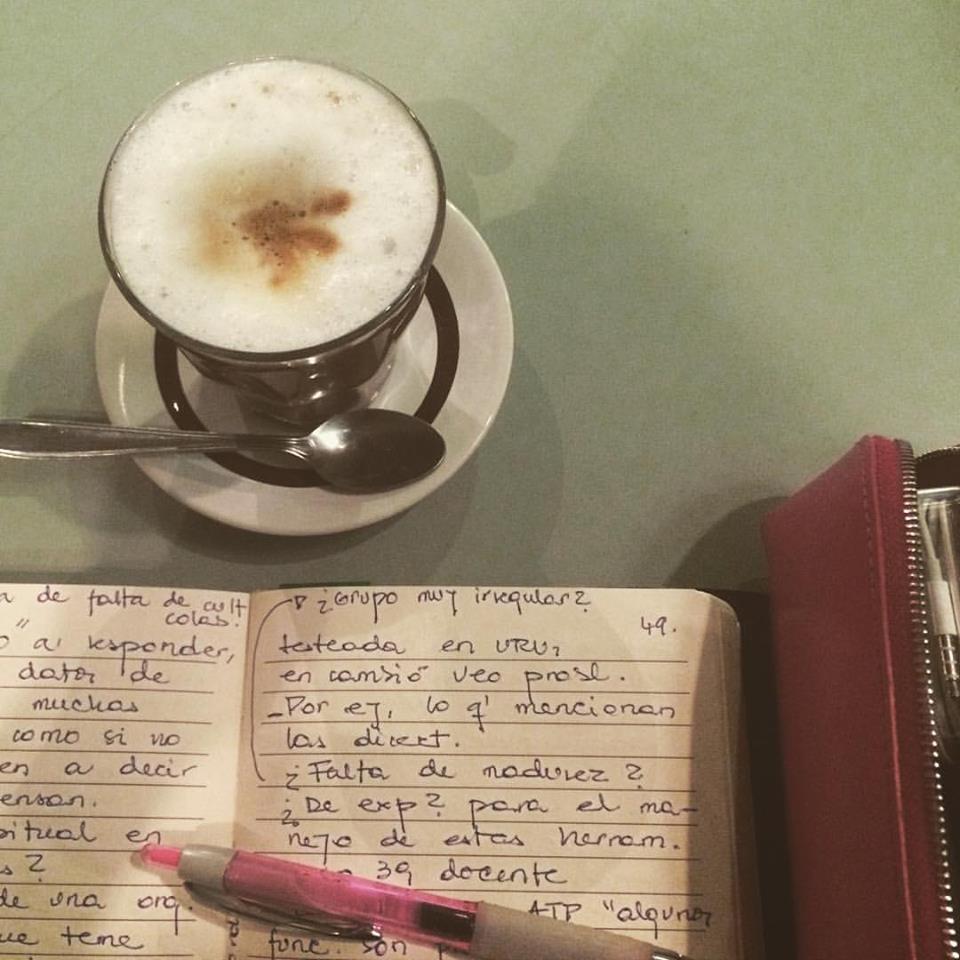 a de falta de cult
colas!
o" a responder,
datos de
muchas
como si no
en a decir
ensan.
bitual en
s?
de una org.
ue teme
¿Grupo muy irregular?
49.
testeada en URU,
en cambio veo prosl.
-Por ej, lo q' mencionan
las direct.
¿Falta de madurez?
¿De exp? para el ma-
nejo de estas herram.
39 docente
ATP "algunor
func. son p